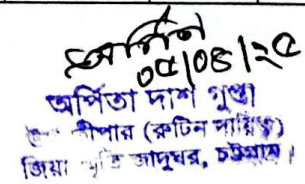 অর্পিতা
০৫/০৪/২৫
অর্পিতা দাশ গুপ্তা
কীপার (রুটিন দায়িত্ব)
জিয়া স্মৃতি জাদুঘর, চট্টগ্রাম।